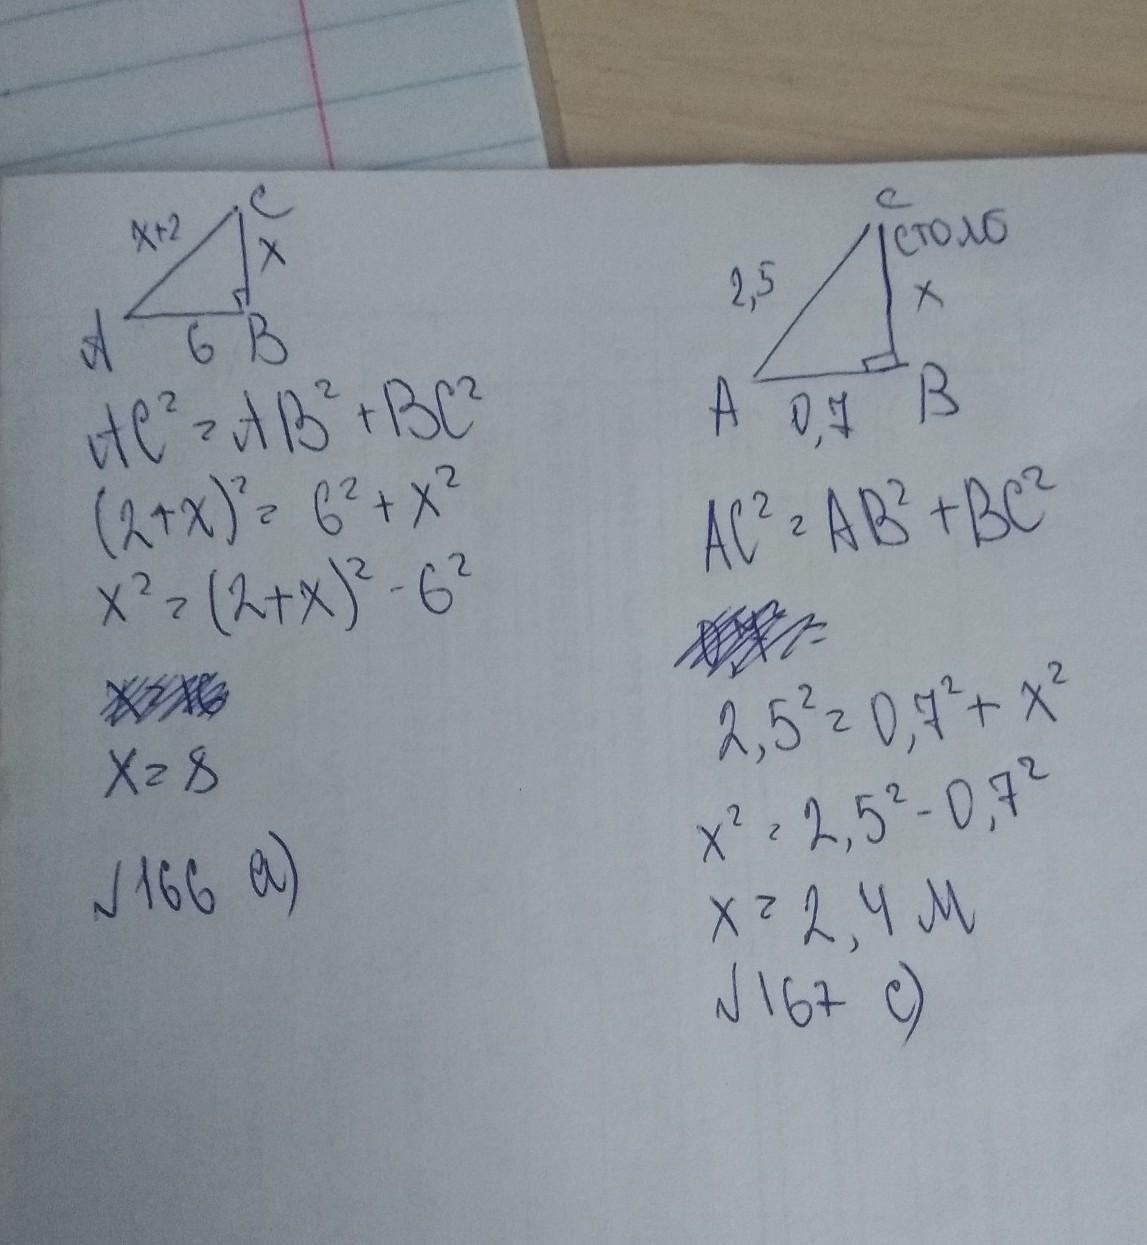 C
x+2
x
A 6 B
AC² = AB² + BC²
(2+x)² = 6² + x²
x² = (2+x)² - 6²
x = 8
√166 a)
C
столб
2,5
x
A 0,7 B
AC² = AB² + BC²
2,5² = 0,7² + x²
x² = 2,5² - 0,7²
x = 2,4 м
√167 c)